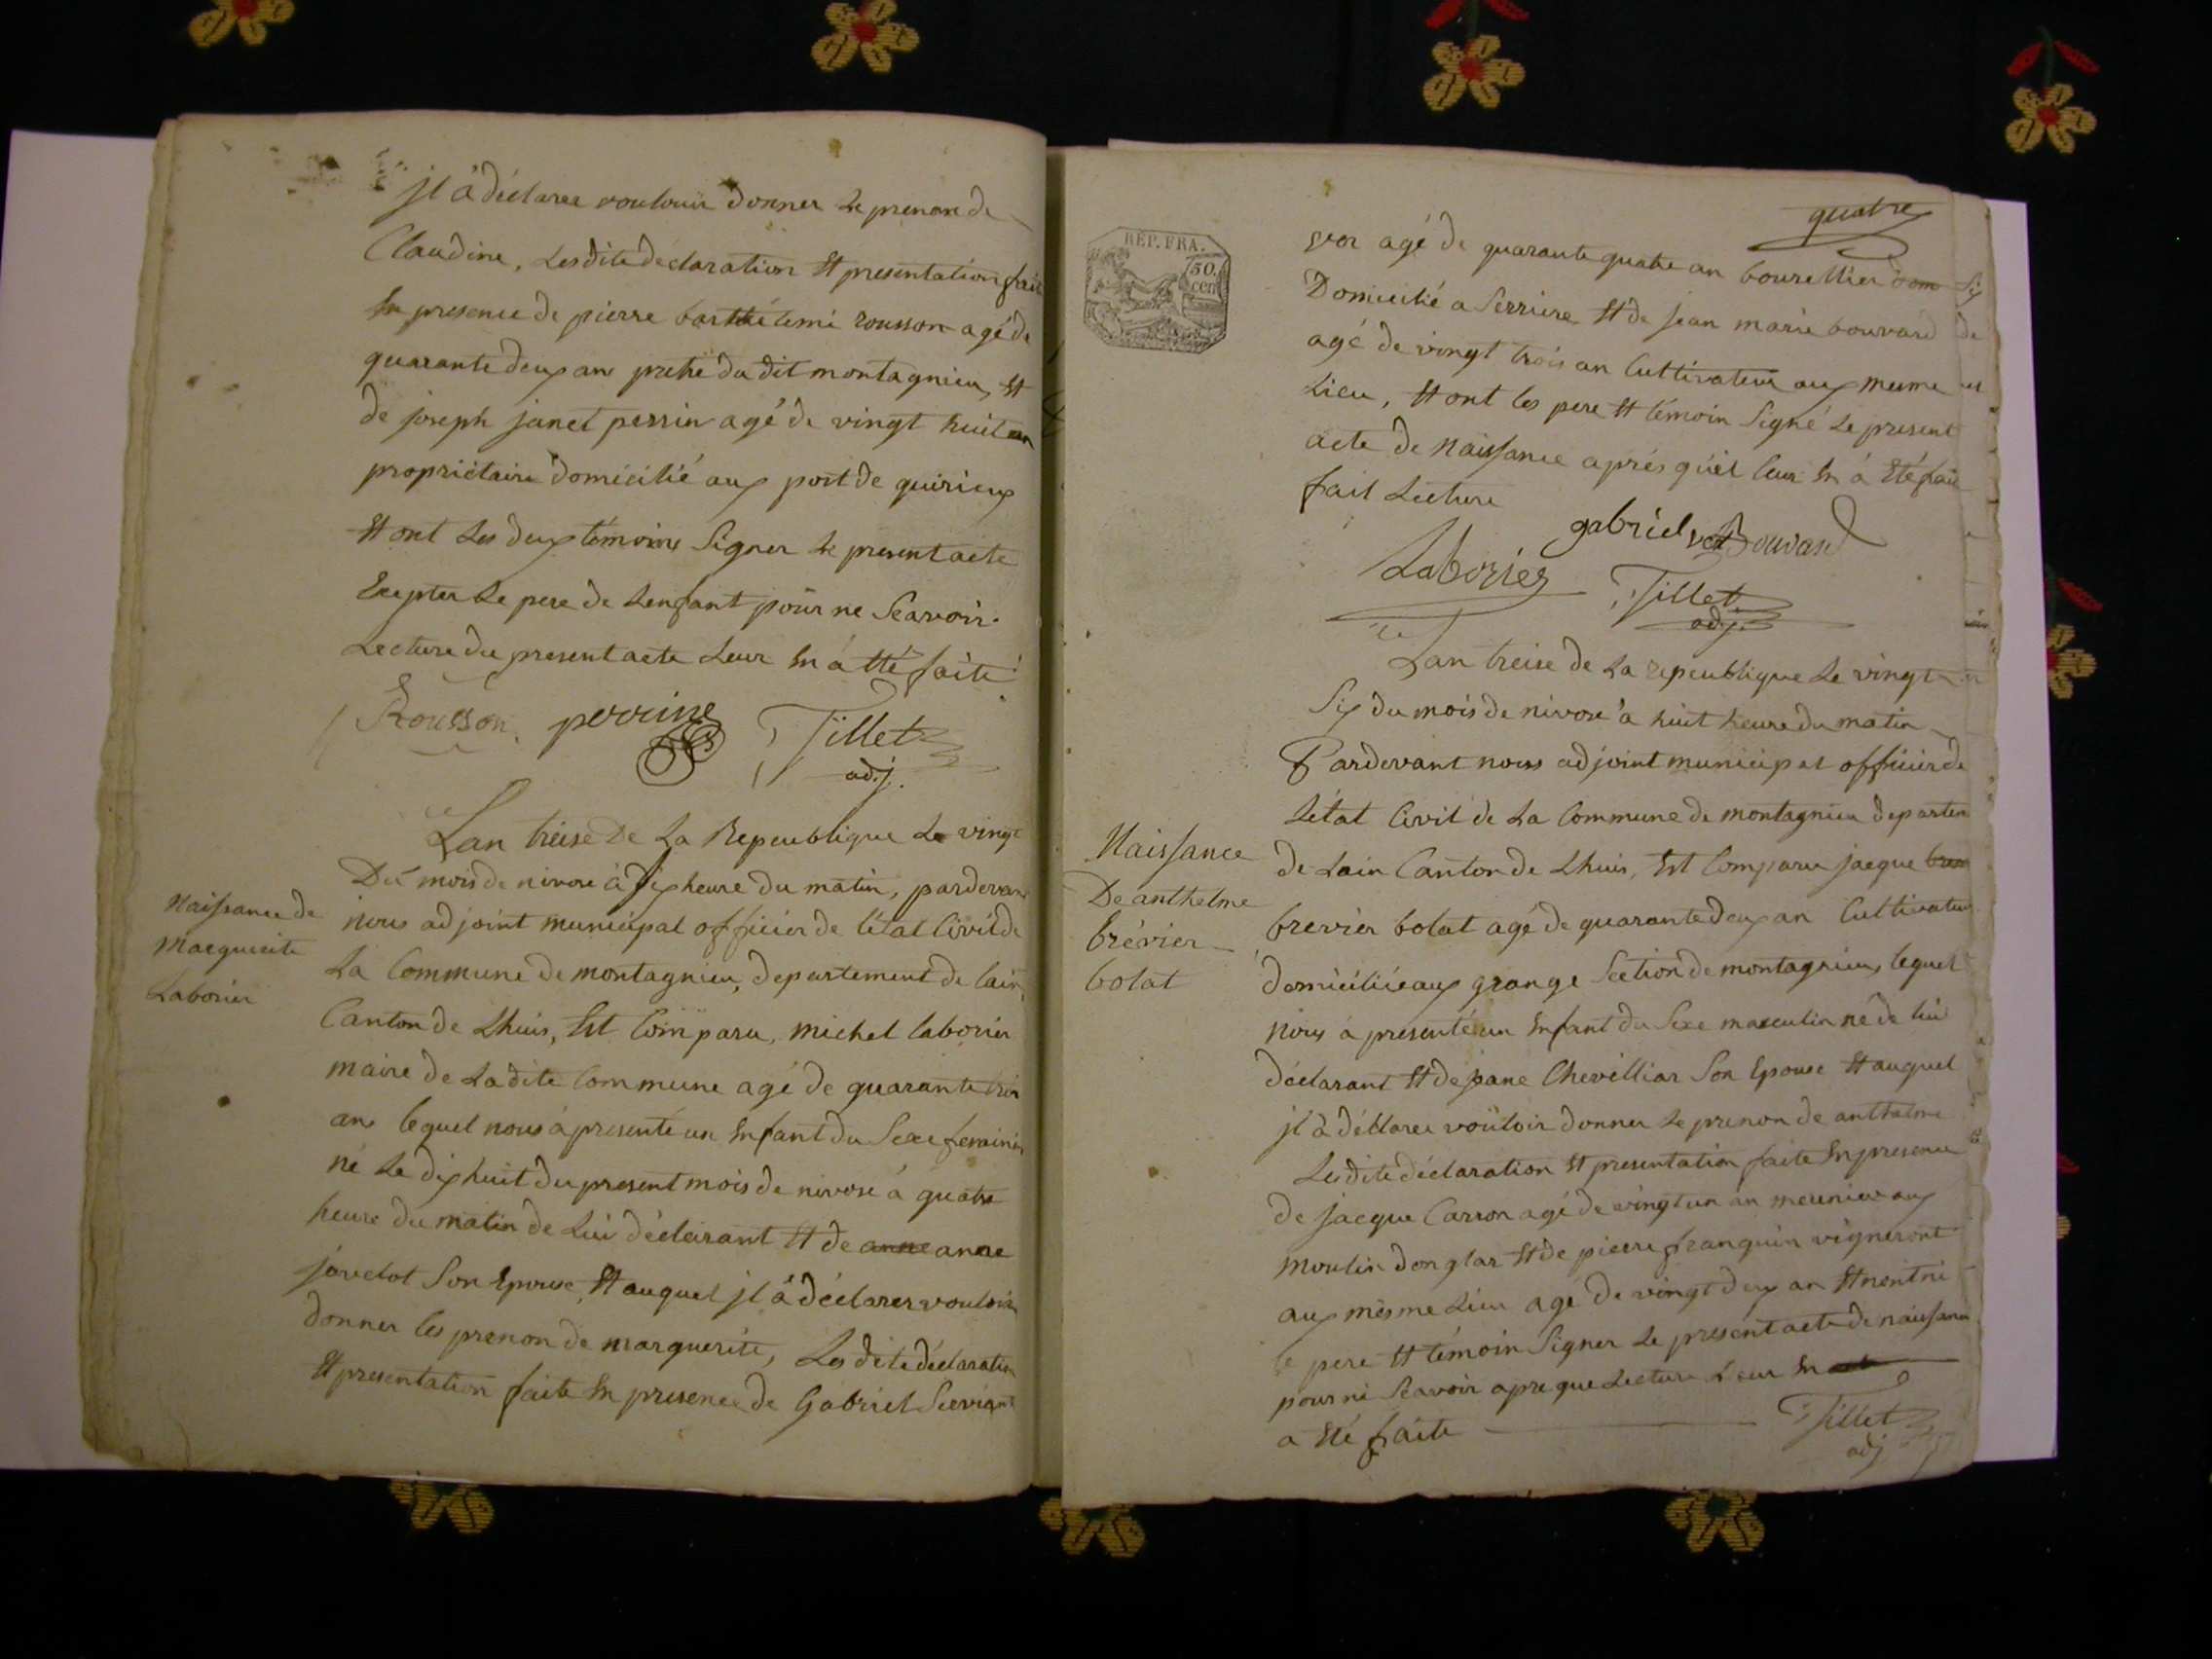 jl á déclaree voulouir donner Le prenon de
Claudine, Lesdite déclaration Et presentation fait
En presence de pierre barthélemi rousson agé de
quarante deux ans pretre du dit montagnieu, Et
de joseph janet perrin agé de vingt huit an
propriétaire domicilié aux port de quirieux
Et ont Les deux témoins Signer Le present acte
Exepter Le pere de Lenfant pour ne Scavoir.
Lecture du present acte Leur En á Eté faite
Rousson. perrin Tillet
adj.
Lan treise De La Republique Le vingt
Du mois de nivose à dix heure du matin, pardevant
nous adjoint municipal officier de létat Civil de
La Commune de montagnieu, departement de lain,
Canton de Lhuis, Est Comparu, michel laborier
maire de Ladite Commune agé de quarante trois
ans lequel nous a presenté un Enfant du Sexe feminin
né Le dix huit du present mois de nivose á quatre
heure du matin de Lui déclairant Et de anne anne
javelot Son Epouse, Et auquel jl á déclarer vouloir
donner les prenon de marguerite, Les dite déclaration
Et presentation faite En presence de Gabriel Servient
Naissance de
Marguerite
Laborier
quatre
REP. FRA.
50.
cen
vor agé de quarante quatre an bourellier dom
Domicilié a Serriere Et de jean marie bouvard
agé de vingt trois an Cultivateur aux mesme
Lieu, Et ont les pere Et témoin Signé Le present
acte de Naissance aprés qu'il leur En á Eté fait
fait Lecture
gabriel vor Bouvard
Laborier Tillet
adj.
Lan treise de La republique Le vingt
Six du mois de nivose a huit heure du matin
Pardevant nous adjoint municipal officier de
Létat Civil de La Commune de montagnieu departem
de Lain Canton de Lhuis, Est Comparu jacque brev
brevier bolat agé de quarante deux an Cultivateur
domiciliée aux grange Section de montagnieu, lequel
nous á presenté un Enfant du Sexe masculin né de lui
déclarant Et de jeane Chevilliar Son Epouse Et auquel
jl á déclarer vouloir donner Le prenon de anthelme
Lesdite déclaration Et presentation faite En presence
de jacque Carron agé de vingt un an meunier aux
moulin donglar Et de pierre franquin vigneront
aux mesme Lieu agé de vingt deux an Et nont ni
le pere Et témoin Signer Le present acte de naissance
pour ni Scavoir apre que Lecture Leur En
a Eté faite
Tillet
adj
Naissance
De anthelme
brévier
bolat